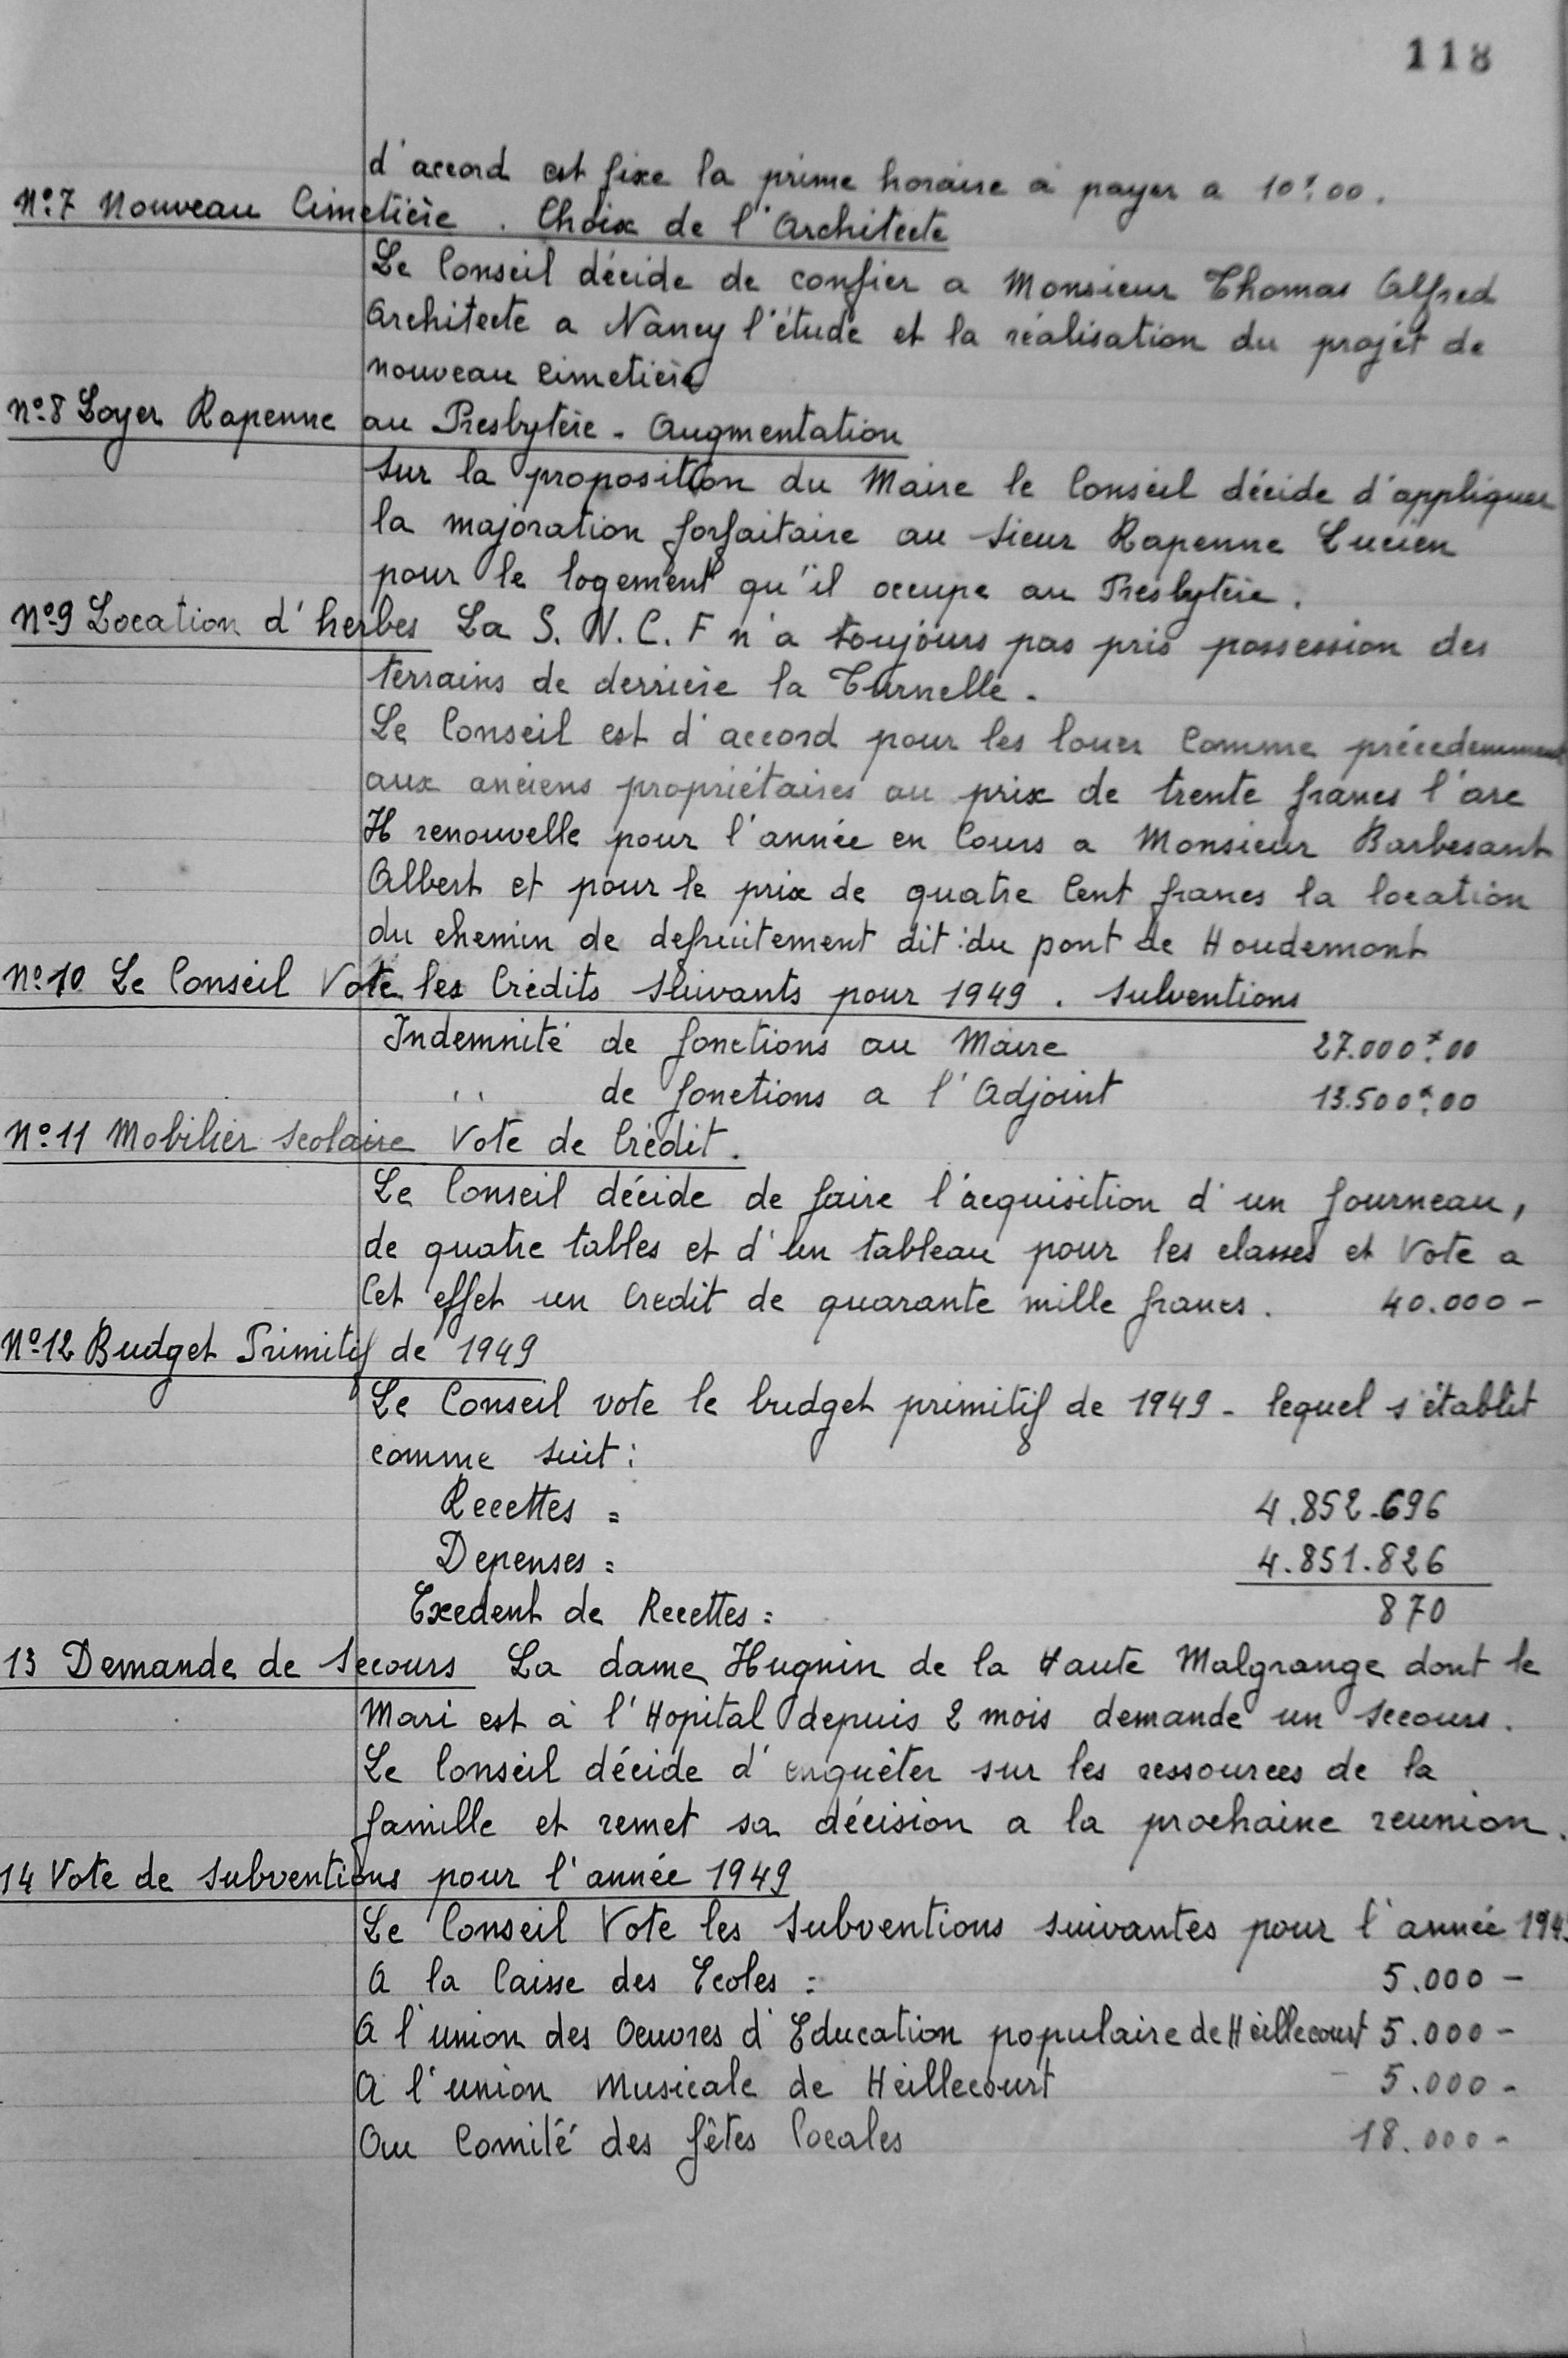 118
d'accord est fixe la prime horaire à payer a 10f00.
N°7 Nouveau Cimetière. Choix de l'Architecte
Le Conseil décide de confier a Monsieur Thomas Alfred
Architecte a Nancy l'étude et la réalisation du projet de
nouveau cimetière
N°8 Loyer Rapenne au Presbytère - Augmentation
Sur la proposition du Maire le Conseil décide d'appliquer
la majoration forfaitaire au sieur Rapenne Lucien
pour le logement qu'il occupe au Presbytère.
N°9 Location d'herbes La S.N.C.F n'a toujours pas pris possession des
terrains de derrière la Turnelle.
Le Conseil est d'accord pour les louer Comme précedemment
aux anciens propriétaires au prix de trente francs l'are
Il renouvelle pour l'année en Cours a Monsieur Barbesant
Albert et pour le prix de quatre Cent francs la location
du chemin de defruitement dit: du pont de Houdemont
N°10 Le Conseil Vote les Crédits suivants pour 1949. Subventions
Indemnité de fonctions au Maire 27.000f00
" de fonctions a l'Adjoint 13.500f00
N°11 Mobilier scolaire Vote de Crédit.
Le Conseil décide de faire l'acquisition d'un fourneau,
de quatre tables et d'un tableau pour les classes et Vote a
Cet effet un Credit de quarante mille francs. 40.000 -
N°12 Budget Primitif de 1949
Le Conseil vote le budget primitif de 1949 - lequel s'établit
comme suit:
Recettes = 4.852.696
Depenses = 4.851.826
Exedent de Recettes = 870
13 Demande de Secours La dame Hugnin de la Haute Malgrange dont le
Mari est à l'Hopital depuis 2 mois demande un secours.
Le Conseil décide d'enquêter sur les ressources de la
famille et remet sa décision a la prochaine reunion.
14 Vote de subventions pour l'année 1949
Le Conseil Vote les subventions suivantes pour l'année 194
A la Caisse des Ecoles = 5.000 -
A l'union des Oeuvres d'Education populaire de Heillecourt 5.000 -
A l'union Musicale de Heillecourt 5.000 -
Au Comité des fêtes locales 18.000 -